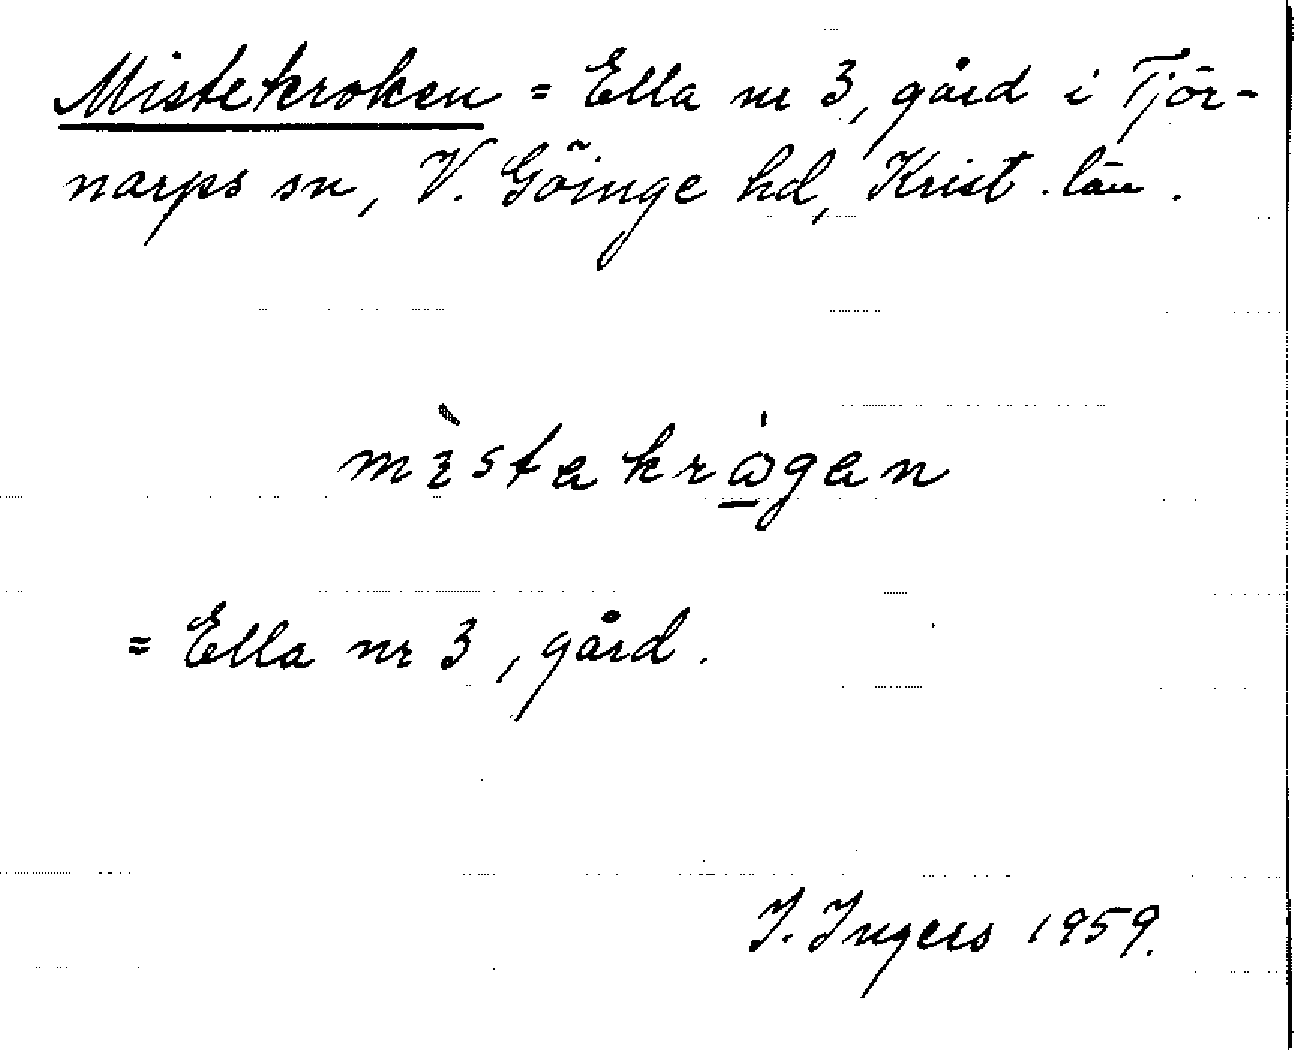 Mistekroken = Ella nr 3, gård i Tjör-
narps sn, V. Göinge hd, Krist. län.
mìstekrågen
= Ella nr 3, gård.
I. Ingers 1959.